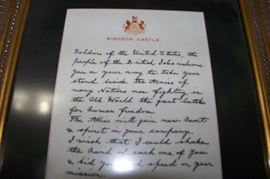 WINDSOR CASTLE.
Soldiers of the United States, the
people of the British Isles welcome
you on your way to take your
stand beside the Armies of
many Nations now fighting in
the Old World the great battle
for human freedom.
The Allies will gain new heart
& spirit in your company.
I wish that I could shake
the hand of each one of you
& bid you God speed on your
mission.